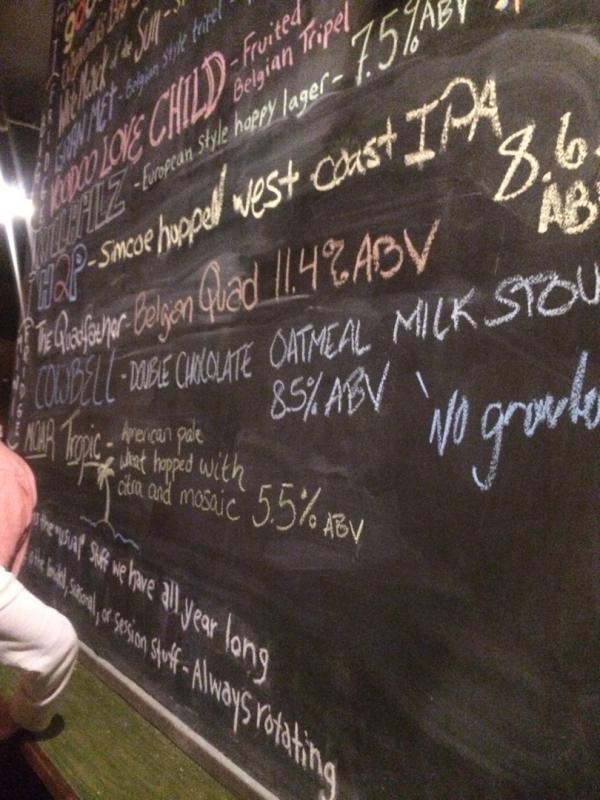 of the Sun -
- Belgian style tripel -
VOODOO LOVE CHILD - Fruited
Belgian Tripel
- European style hoppy lager - 7.5% ABV
HOP - Simcoe hopped west coast IPA
8.6
AB
The Quadfather - Belgian Quad 11.4% ABV
COWBELL - DOUBLE CHOCOLATE OATMEAL MILK STOU
8.5% ABV
"No growle
MOAR Tropic - American pale
wheat hopped with
citra and mosaic 5.5% ABV
the "usual" stuff we have all year long
the limited, seasonal, or session stuff - Always rotating